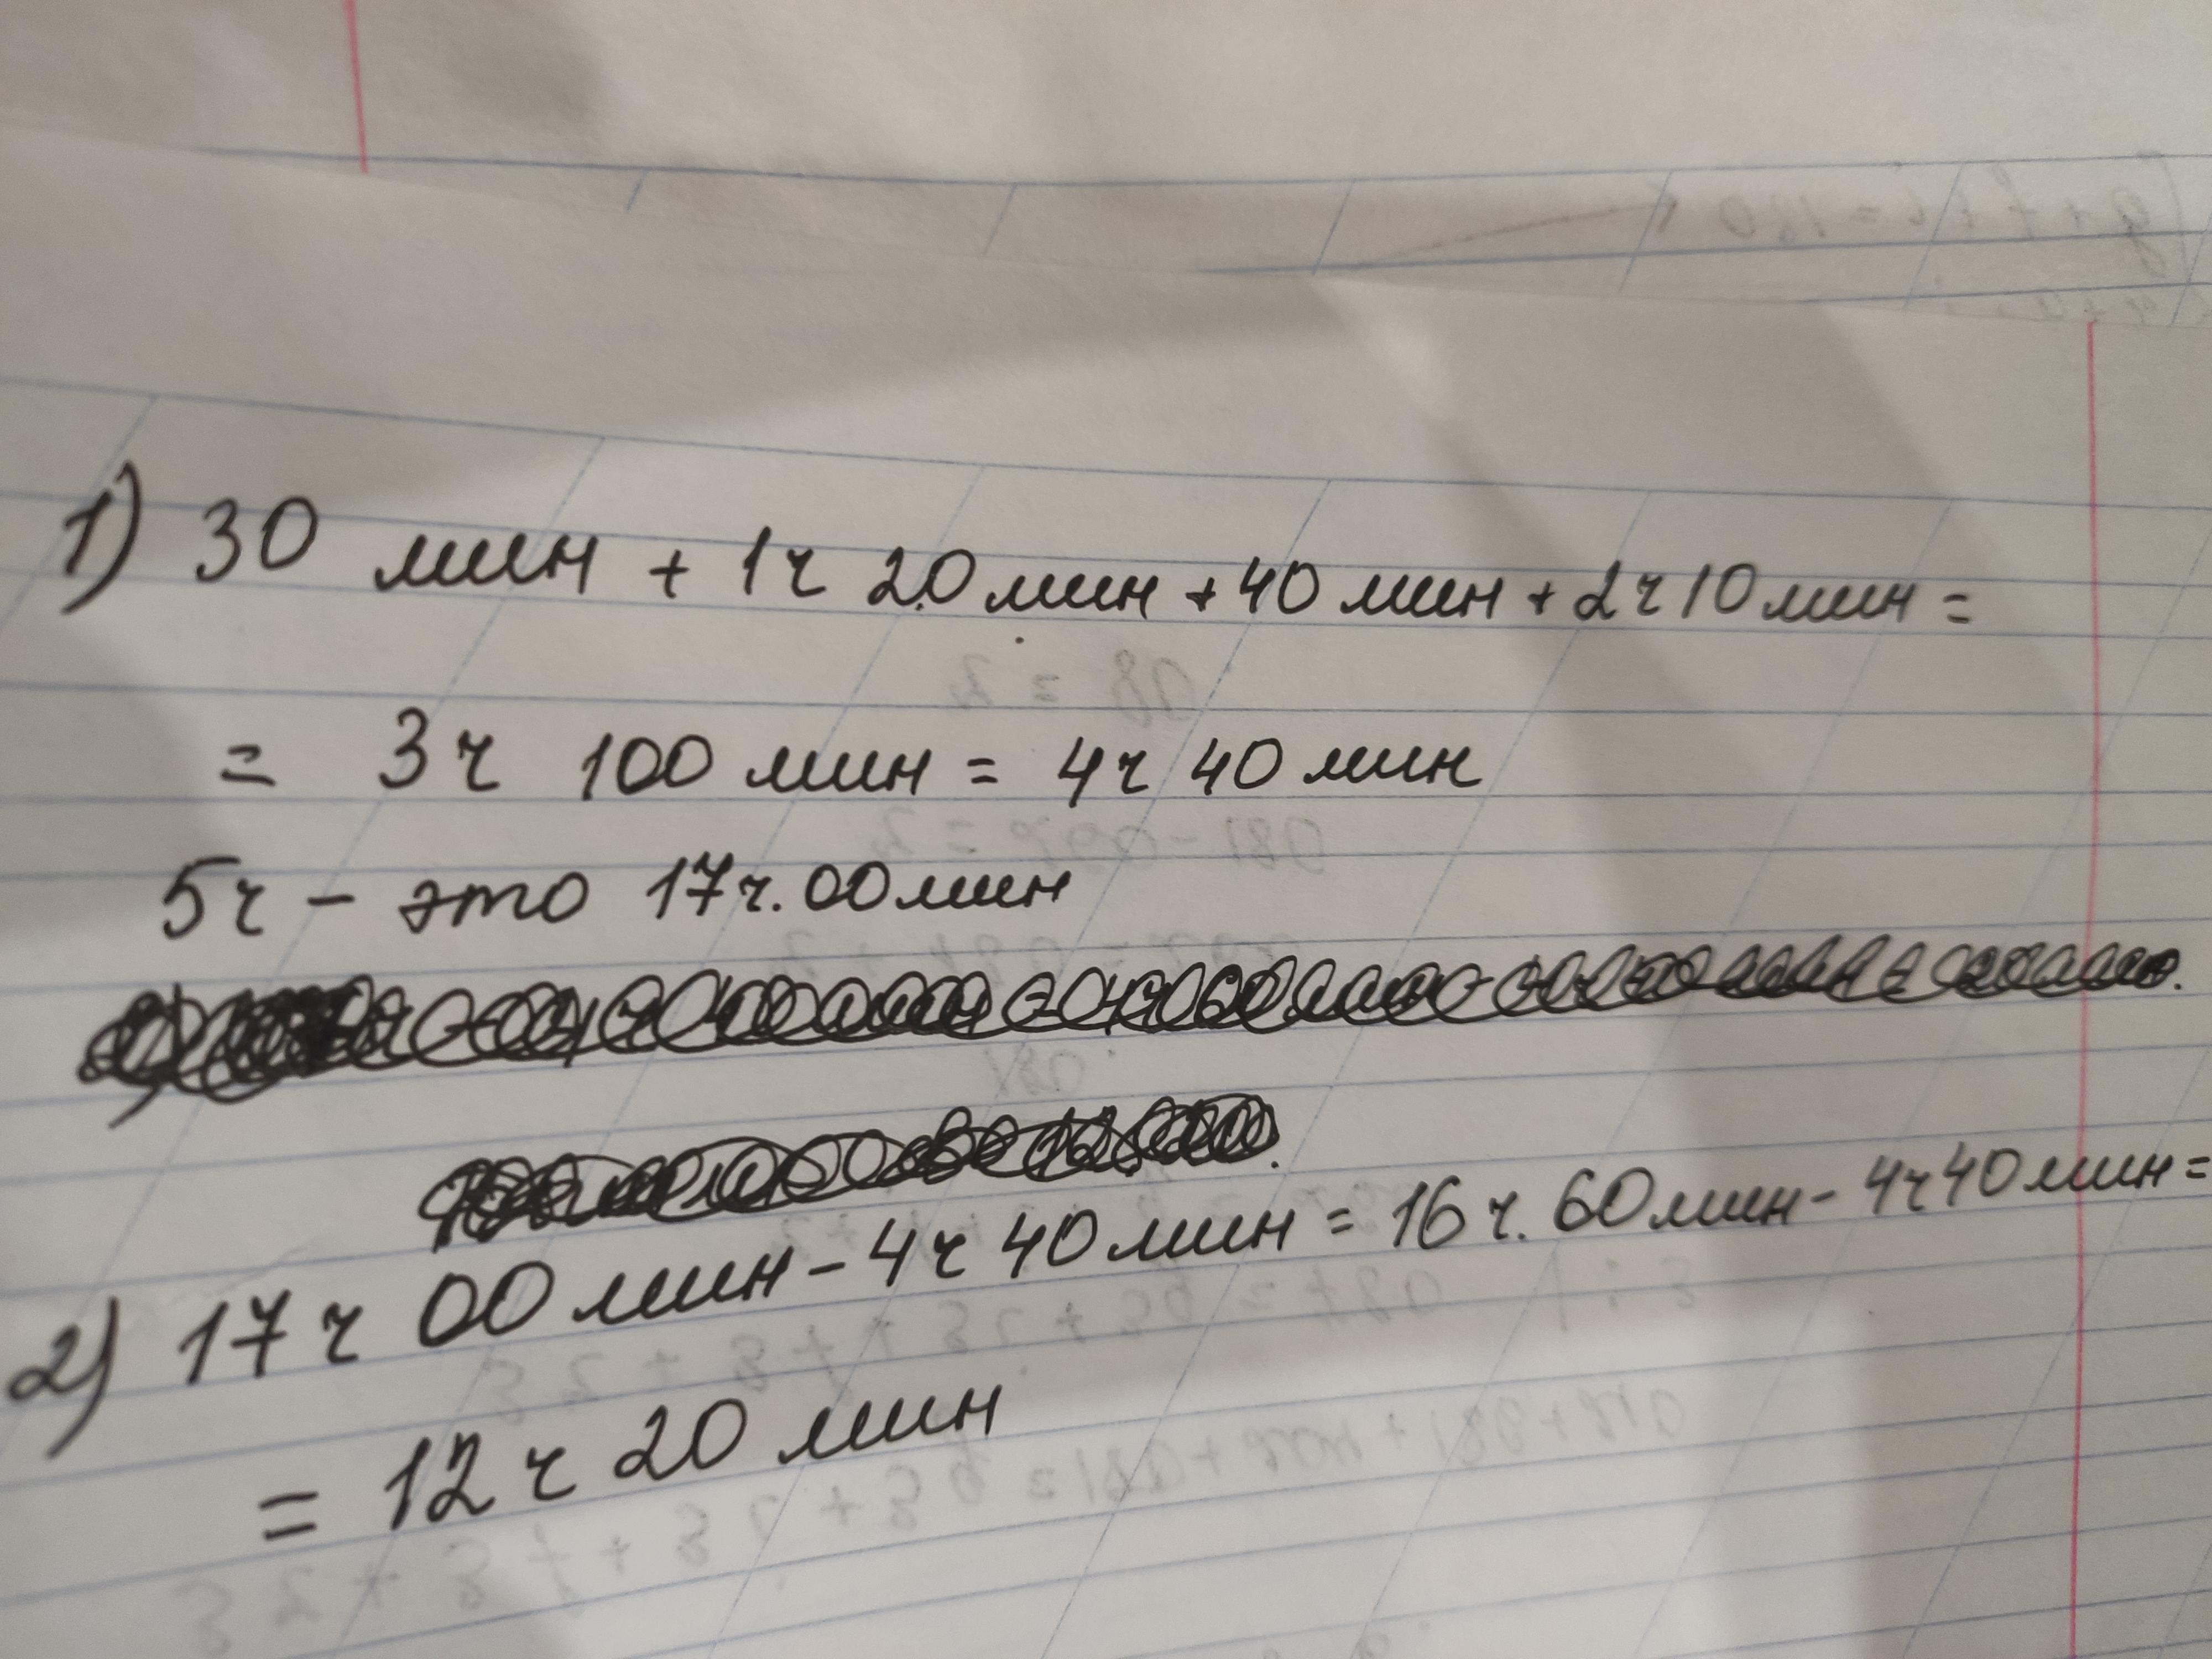 1) 30 мин + 1ч 20 мин + 40 мин + 2ч 10 мин =
= 3ч 100 мин = 4ч 40 мин
5ч - это 17ч. 00 мин
2) 17ч 00 мин - 4ч 40 мин = 16ч. 60 мин - 4ч 40 мин =
= 12ч 20 мин